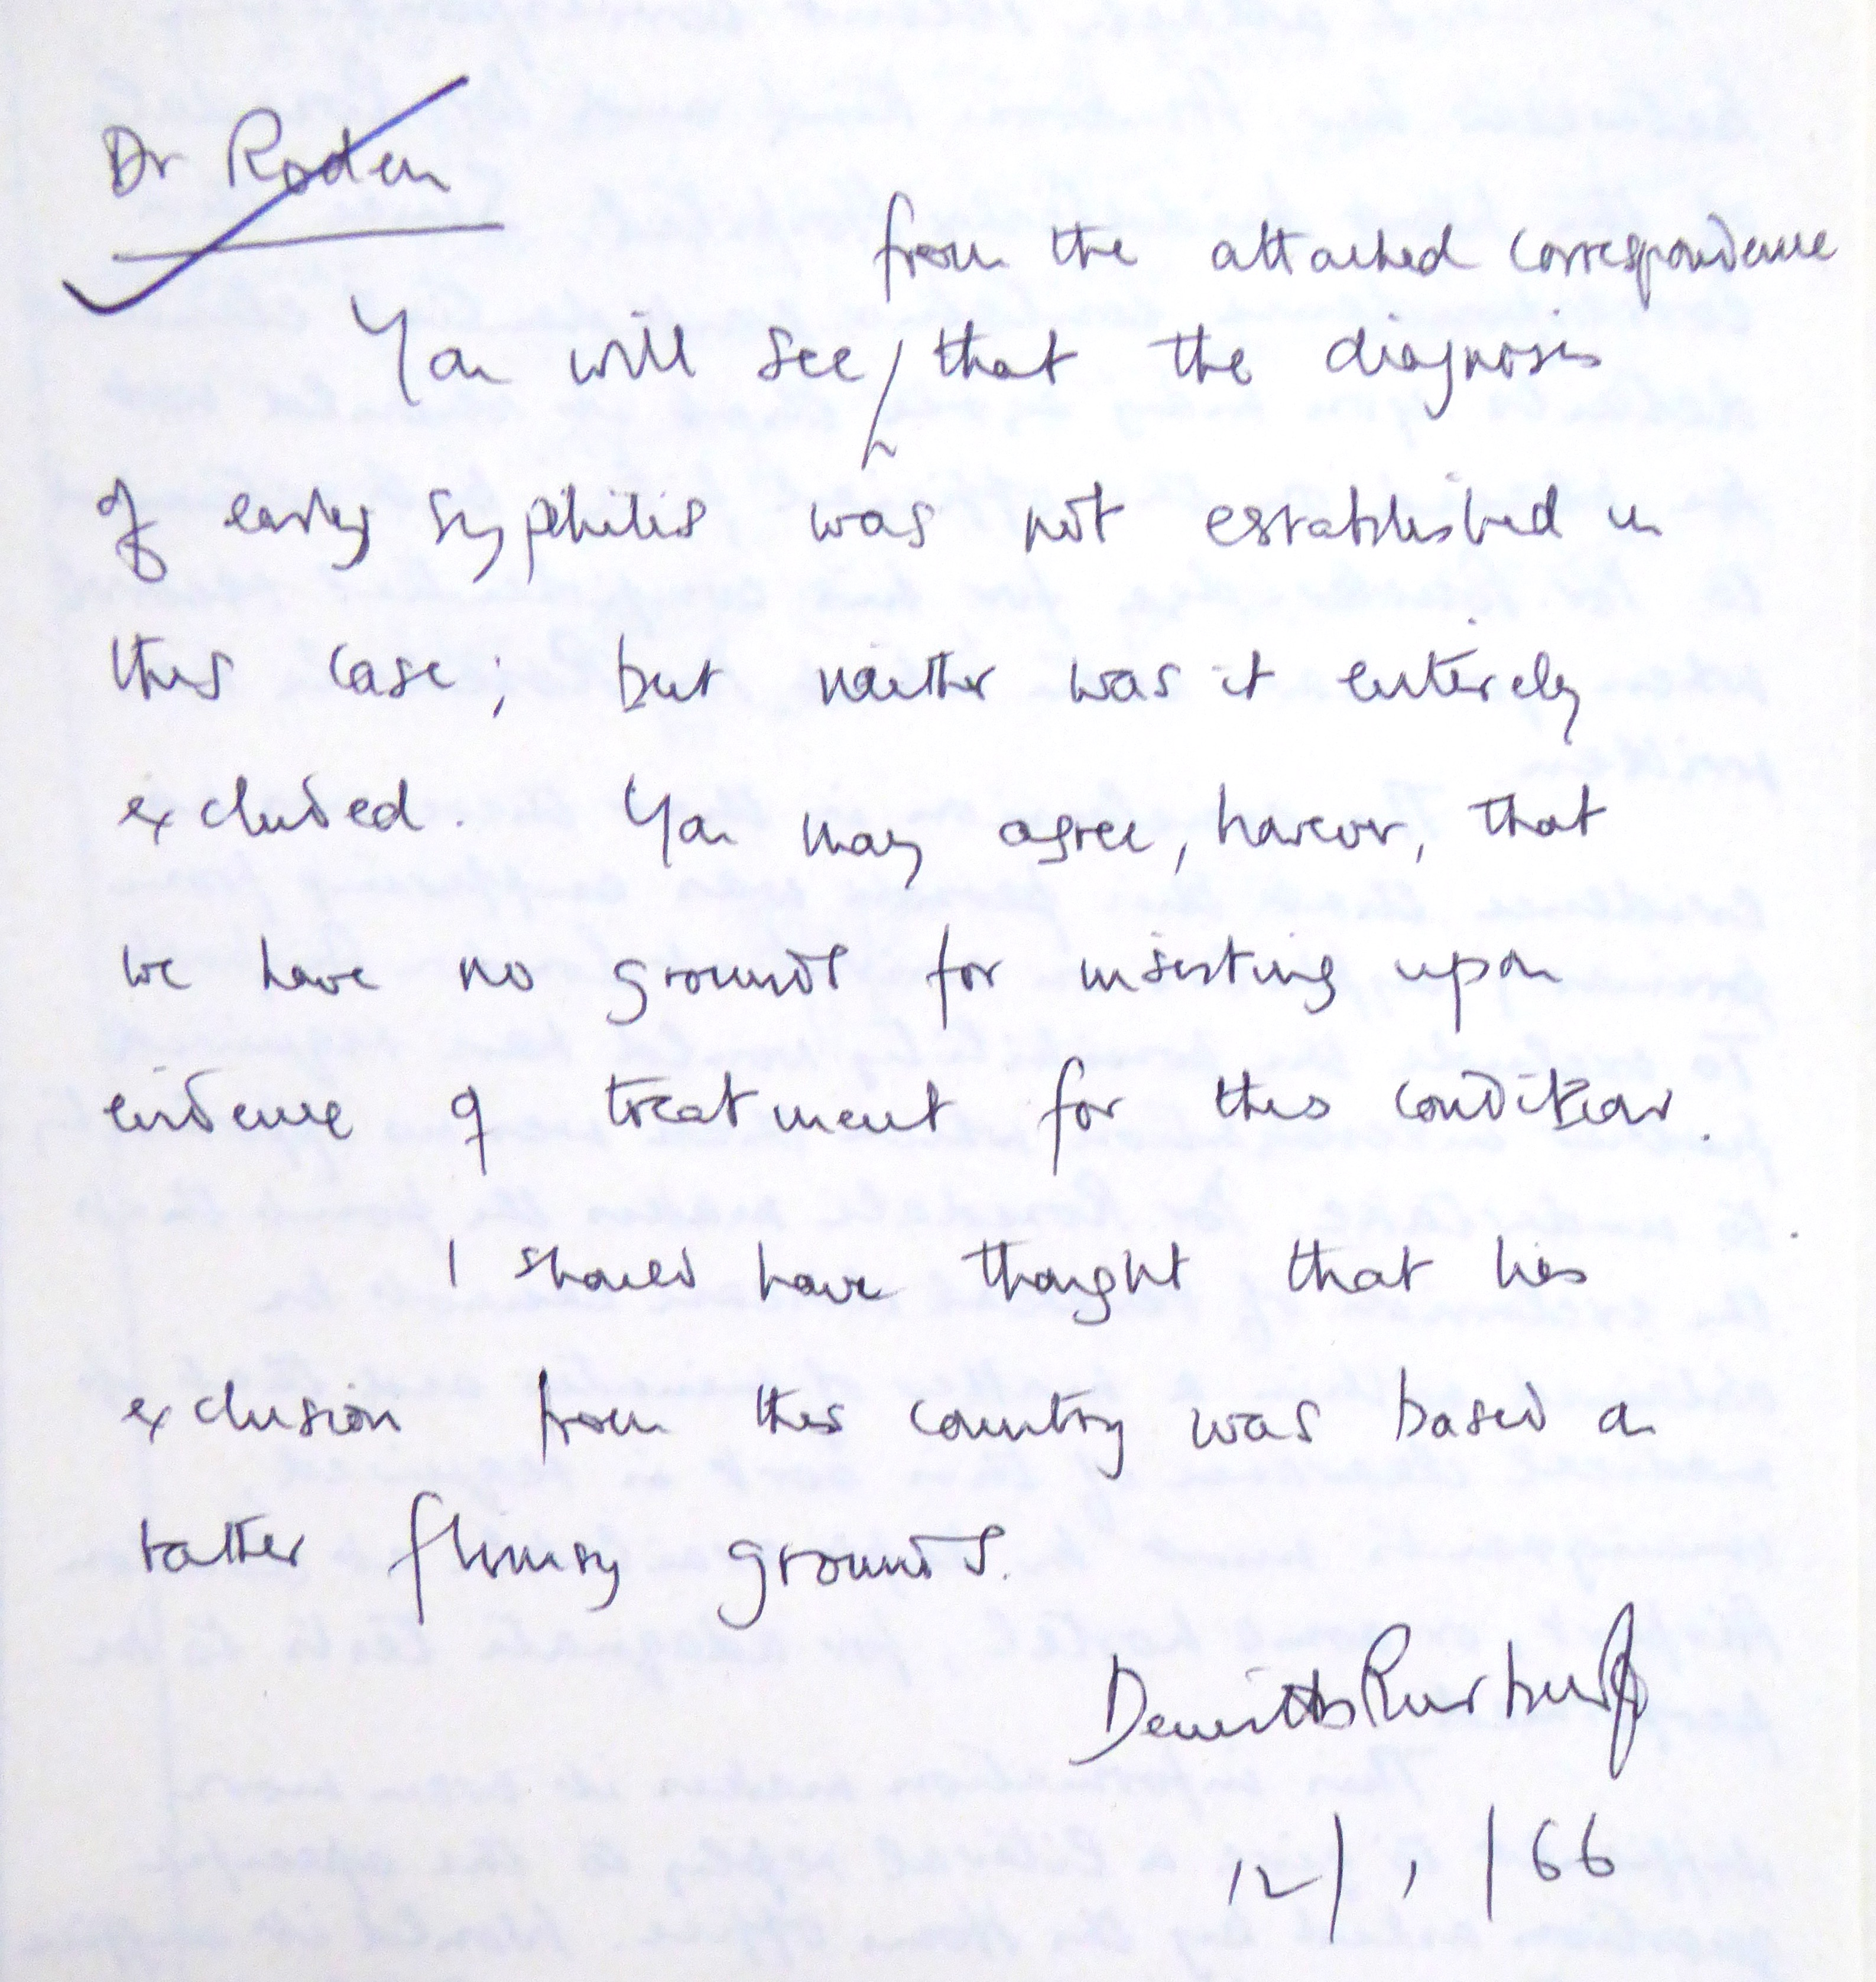 Dr Roden
from the attached correspondence
You will see that the diagnosis
of early syphilis was not established in
this case; but neither was it entirely
excluded. You may agree, however, that
we have no grounds for insisting upon
evidence of treatment for this condition.
I should have thought that his
exclusion from this country was based on
rather flimsy grounds.
12/1/66